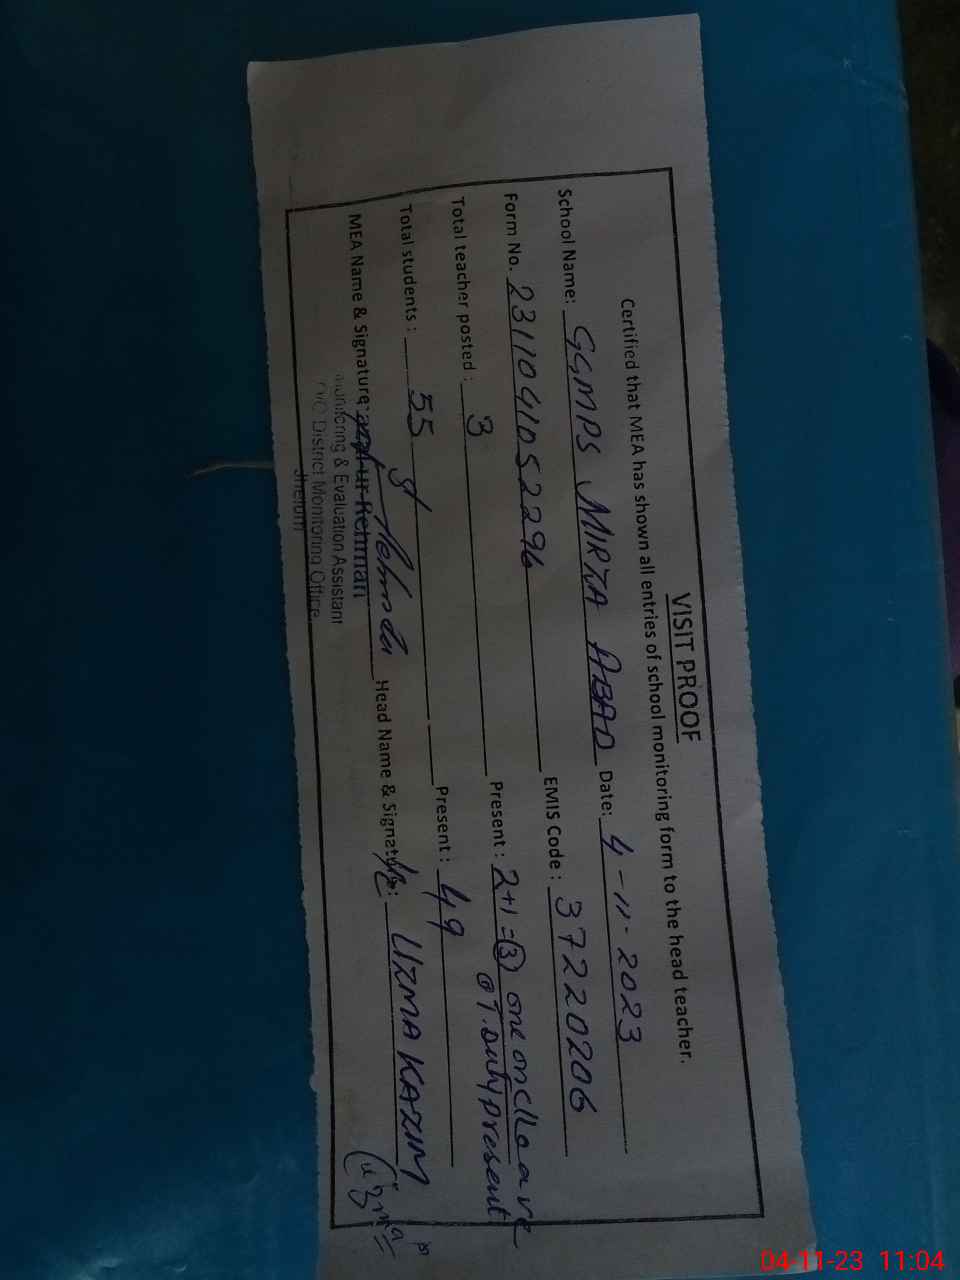 VISIT PROOF
Certified that MEA has shown all entries of school monitoring form to the head teacher.
School Name: GGMPS MIRZA ABAD Date: 4-11-2023
Form No. 2311041052296 EMIS Code: 37220206
Total teacher posted: 3 Present: 2+1=(3) one on C/leave
@ T. duty present
Total students: 55 Present: 49
MEA Name & Signature: ur-Rehman Head Name & Signature: UZMA KAZIM
Monitoring & Evaluation Assistant
District Monitoring Office
Jhelum
04-11-23 11:04